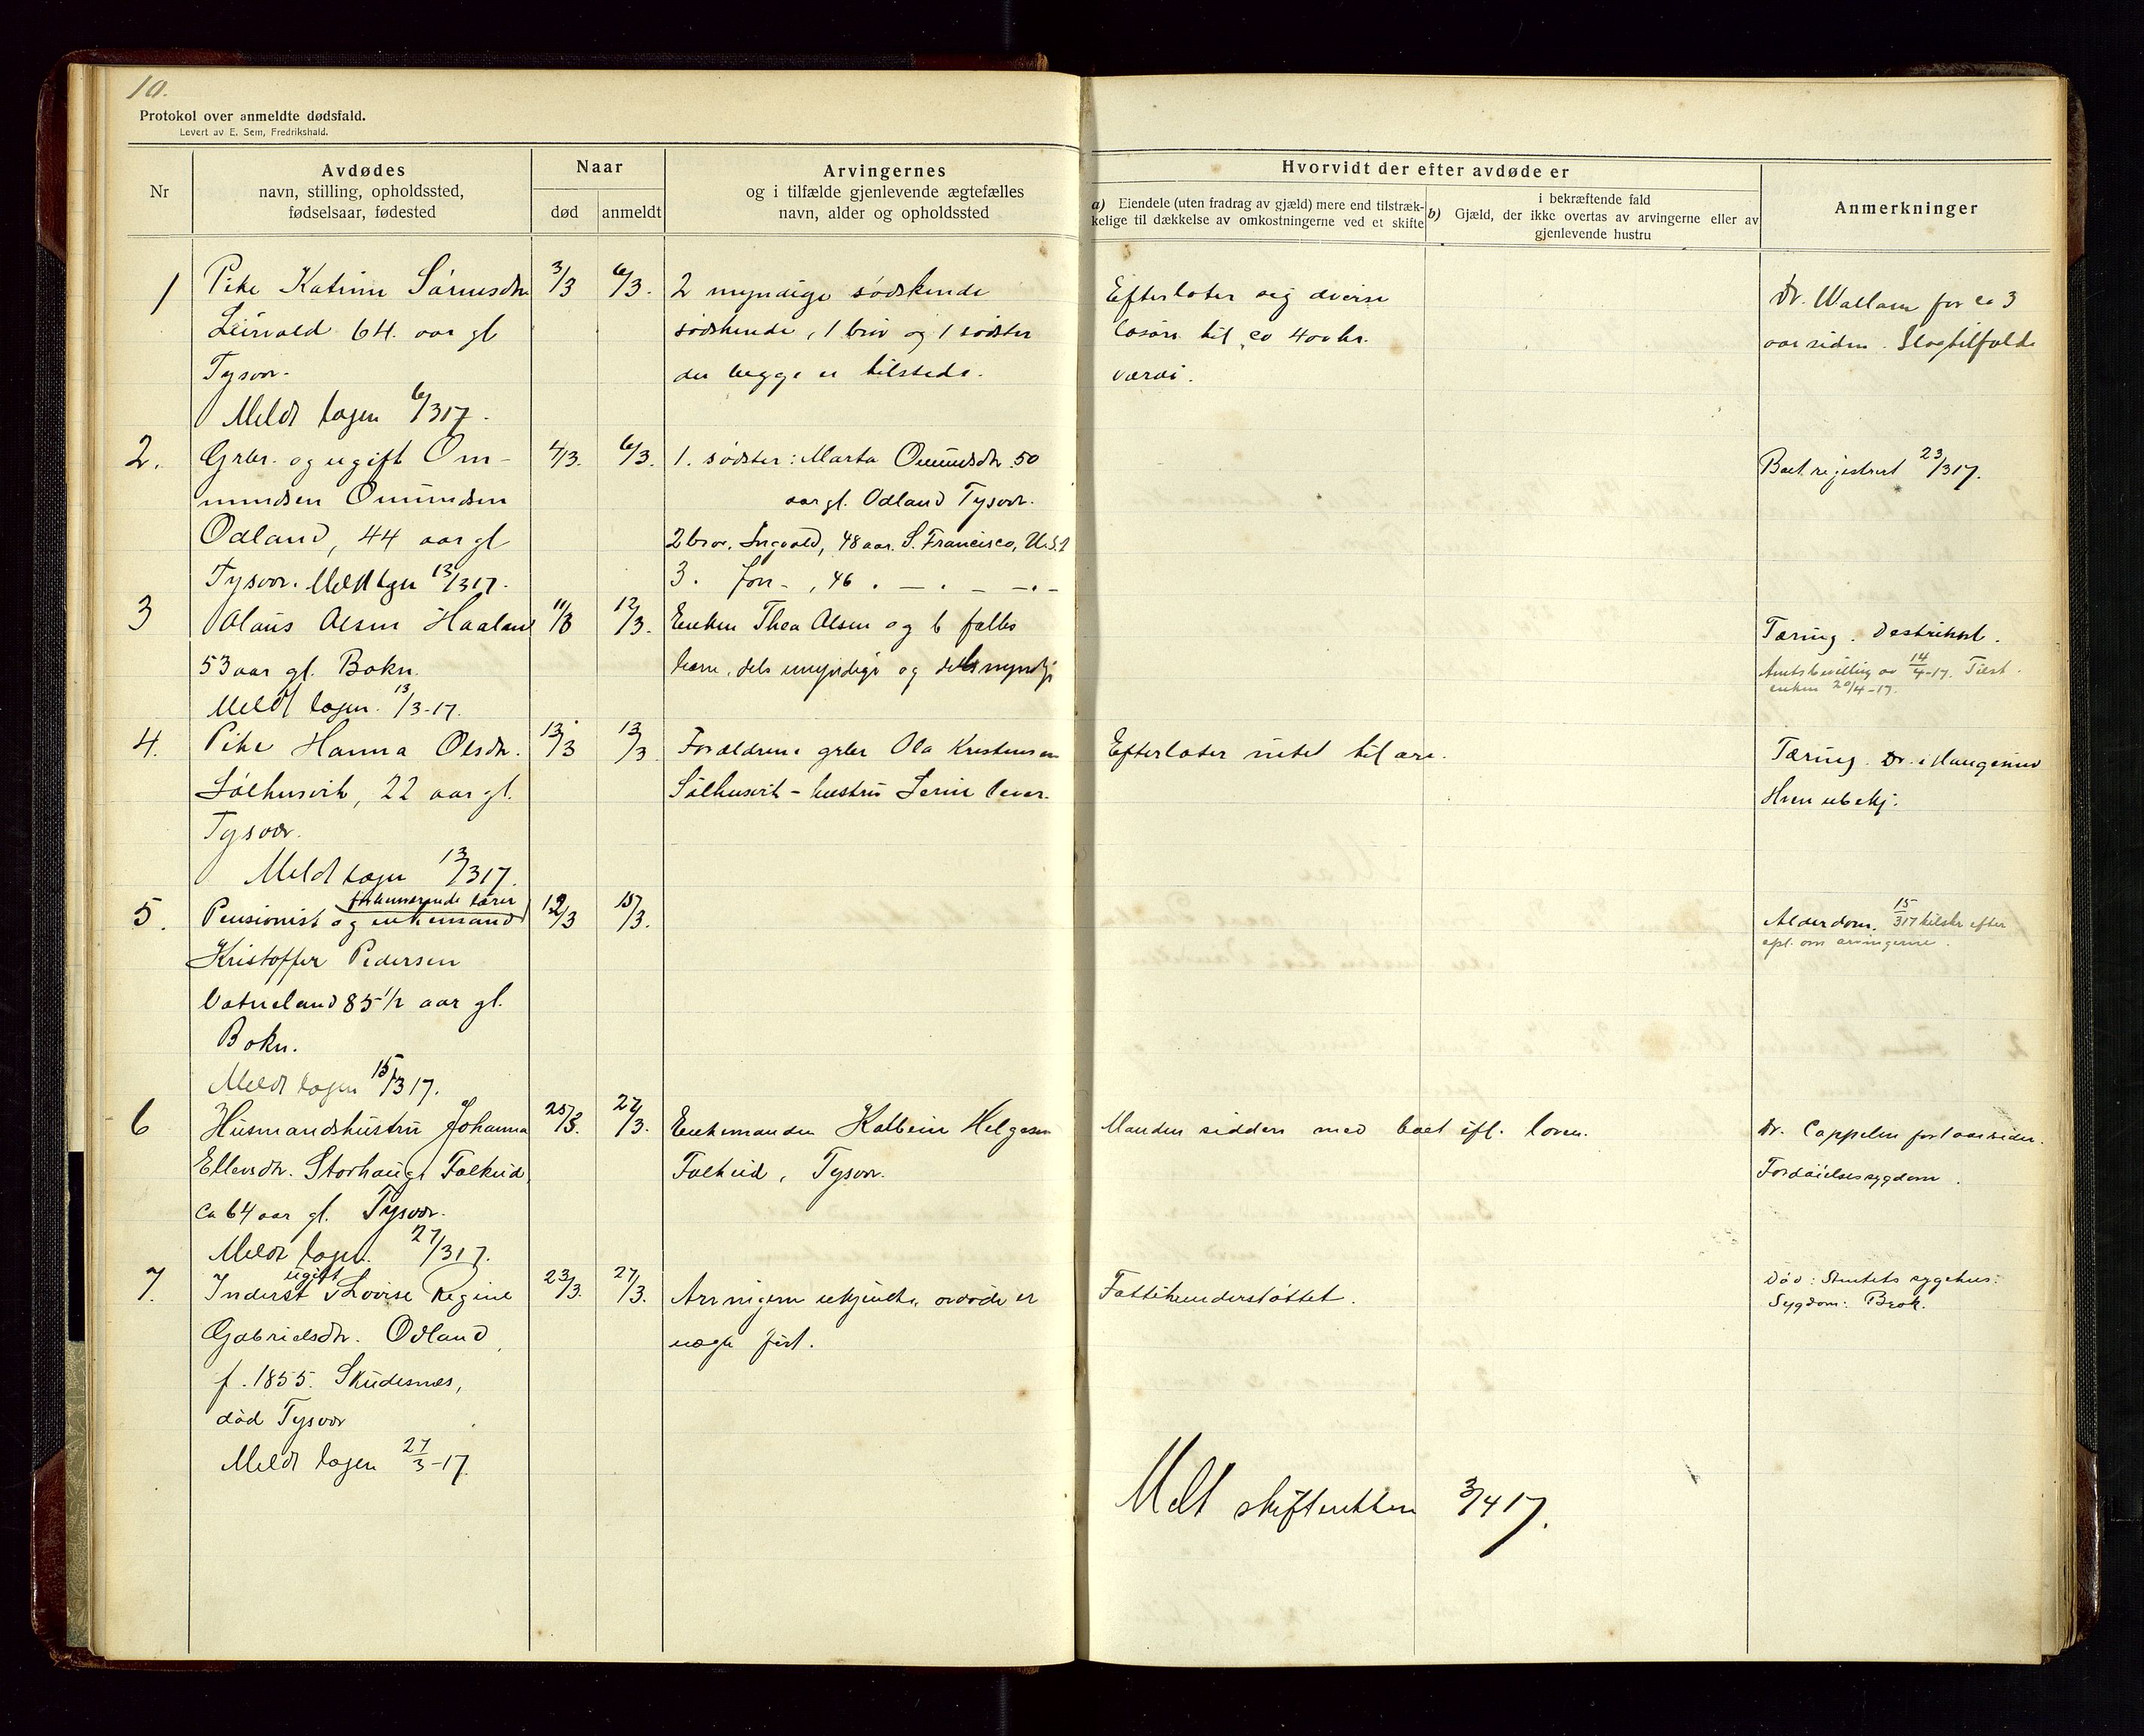 10.
Protokol over anmeldte dødsfald.
Levert av E. Sem, Fredrikshald.
Nr
Avdødes
navn, stilling, opholdssted,
fødselsaar, fødested
Naar
død
anmeldt
Arvingernes
og i tilfælde gjenlevende ægtefælles
navn, alder og opholdssted
Hvorvidt der efter avdøde er
a) Eiendele (uten fradrag av gjæld) mere end tilstræk-
kelige til dækkelse av omkostningerne ved et skifte
i bekræftende fald
b) Gjæld, der ikke overtas av arvingerne eller av
gjenlevende hustru
Anmerkninger
1 Pike 3/3 6/3. 2 myndige sødskende
64. aar gl sødskende, 1 bror og 1 søster
Tysvær. der begge er tilstede.
Meldt lagen 6/317.
Efterlater sig diverse
løsøre til ca 400 kr.
værdi.
Dr. for ca 3
aar siden. Slagtilfælde
2. Grbr. og ugift Om- 4/3. 6/3. 1. søster: Marta Omundsdtr. 50
mundsen Omundsen aar gl. Odland Tysvær.
Odland, 44 aar gl 2 bror. Ingvald, 48 aar. S. Francisco, U.S.A
Tysvær. Meldt lgn 13/317. 3. , 46 . — . — —.—
Boet registrert 23/317.
3 Olaus Olsen Haaland 11/3 12/3. Enken Thea Olsen og 6 fælles
53 aar gl. Bokn. barn, dels umyndige og dels myndige
Meldt lagen 13/3-17.
Tæring. .
Amtsbevilling av 14/4-17. Tilst.
enken 20/4-17.
4. Pike Hanna Olsdtr. 13/3 13/3 Forældrene grbr Ola Kristensen
22 aar gl. hustru lever.
Tysvær.
Meldt lagen 13/317.
Efterlater intet til arv.
Tæring. Dr. i Haugesund
Hvem ubekj.
5. Pensionist forhenværende lærer og enkemand 12/3 15/3.
Kristoffer Pedersen
Vatneland 85 1/2 aar gl.
Bokn.
Meldt lagen 15/317.
Alderdom. 15/317 tilskr efter
opl. om arvingerne.
6 Husmandshustru Johanna 25/3. 27/3. Enkemanden Kolbein Helgesen
Falkeid, Tysvær.
ca 64 aar gl. Tysvær.
Meldt lagen. 27/317.
Manden sidder med boet ifl. loven.
Dr. Cappelen for 1 aar siden.
Fordøielsessygdom.
7. Inderst ugift Lovise Regine 23/3. 27/3. Arvingerne ukjendte, avdøde er
Gabrielsdtr. Odland, uægte født.
f. 1855. Skudesnes,
død Tysvær
Meldt lagen 27/3-17.
Fattigunderstøttet.
Død: sygehus:
Sygdom: Brok.
Meldt skifteretten 3/417.